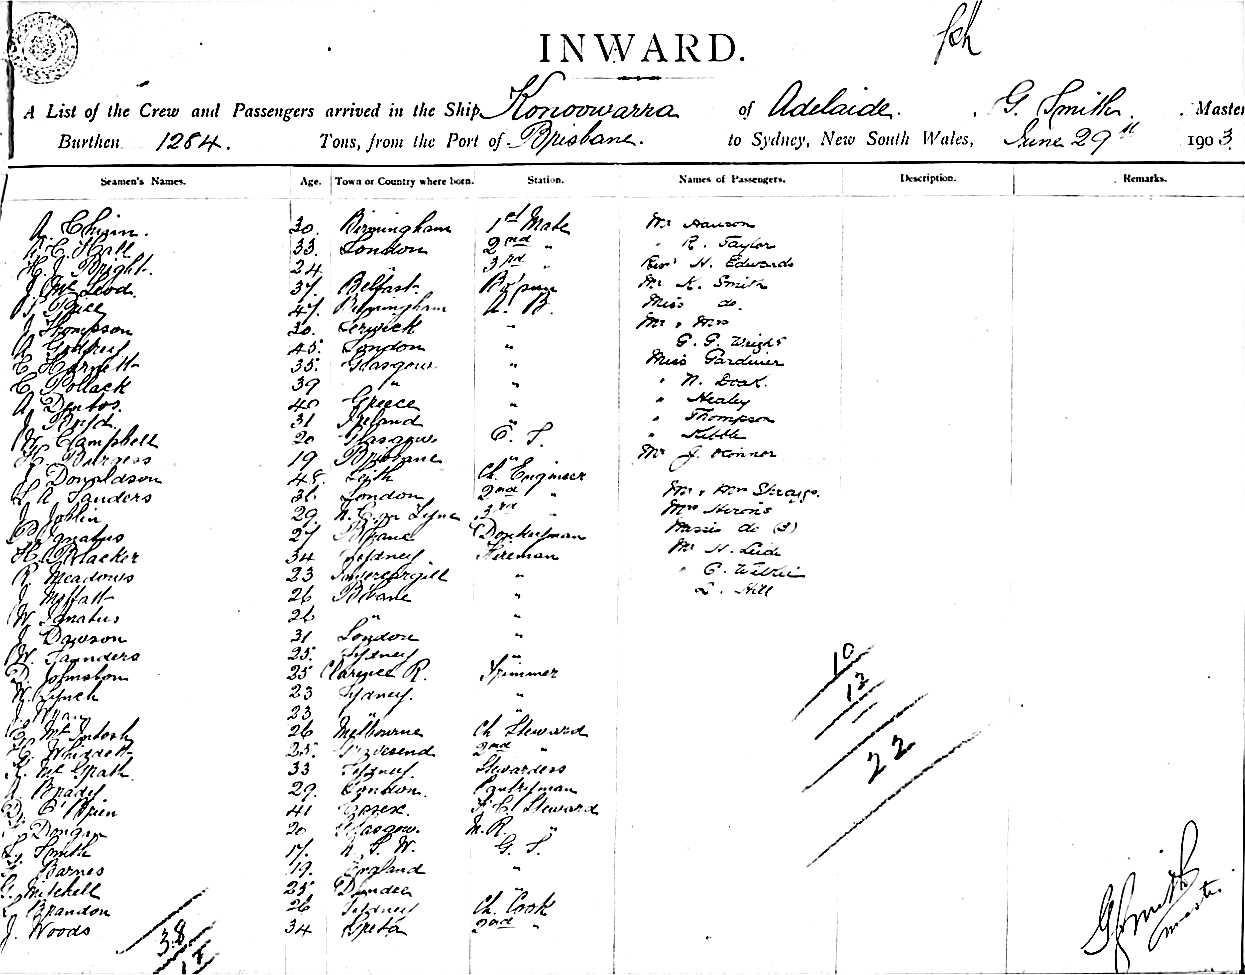 INWARD.
A List of the Crew and Passengers arrived in the Ship Konoowarra of Adelaide. G. Smith. Master
Burthen 1284. Tons, from the Port of Brisbane. to Sydney, New South Wales, June 29th 1903.
Seamen's Names. Age. Town or Country where born. Station. Names of Passengers. Description. Remarks.
A. 30. Birmingham 1st Mate Mr Hanson
Hall 33. London 2nd " " R. Taylor
H. J. Bright. 24 " 3rd " Revd H. Edwards
J. McLeod. 37. Belfast. Bo'sun Mr K. Smith
Price 47. Birmingham A. B. Miss do.
J. Thompson 30. Lerwick " Mr & Mrs
A. Godfrey 45. London " G. P. Wright
C. Harnett 35. Glasgow " Miss Gardiner
C. Pollack 39 " " " N. Doak.
A. Dentos. 40 Greece " " Healey
J. Boyd. 31 Ireland " " Thompson
W. Campbell 20 Glasgow O. S. " Kibble
H. Burgess 19 Brisbane " Mr J. O'Connor
J. Donaldson 48. Leith Ch. Engineer
L. A. Sanders 31. London 2nd " Mr & Mrs
J. Joblin 29. N. C. on Tyne 3rd " Mrs Hirons
P. Ignatus 27 B'bane Donkeyman Misses do (3)
H. Blacker 34 Sydney Fireman Mr H. Lud
R. Meadows 23 Invercargill " " C. Wilkie
J. Moffatt 26 B'bane " L. Hill
W. Ignatus 26 " "
J. Dawson 31 London "
W. Saunders 25. Sydney "
D. Johnston 25 Clarence R. Trimmer
W. Lynch 23 Sydney. "
J. 23 " "
C. McIntosh 26 Melbourne Ch. Steward
H. 25. Gravesend 2nd "
McGrath 33 Sydney. Stewardess
A. Brady 29. London. Pantryman
D. O'Brien 41 Essex. F. C. Steward
Dongan 20 Glasgow. M. R. "
L. Smith 17. N. S. W. G. S.
Barnes 19. England "
G. Mitchell 25 Dundee "
Brandon 26 Sydney Ch. Cook
J. Woods 34 Greta 2nd "
10
12
22
38
G Smith
Master